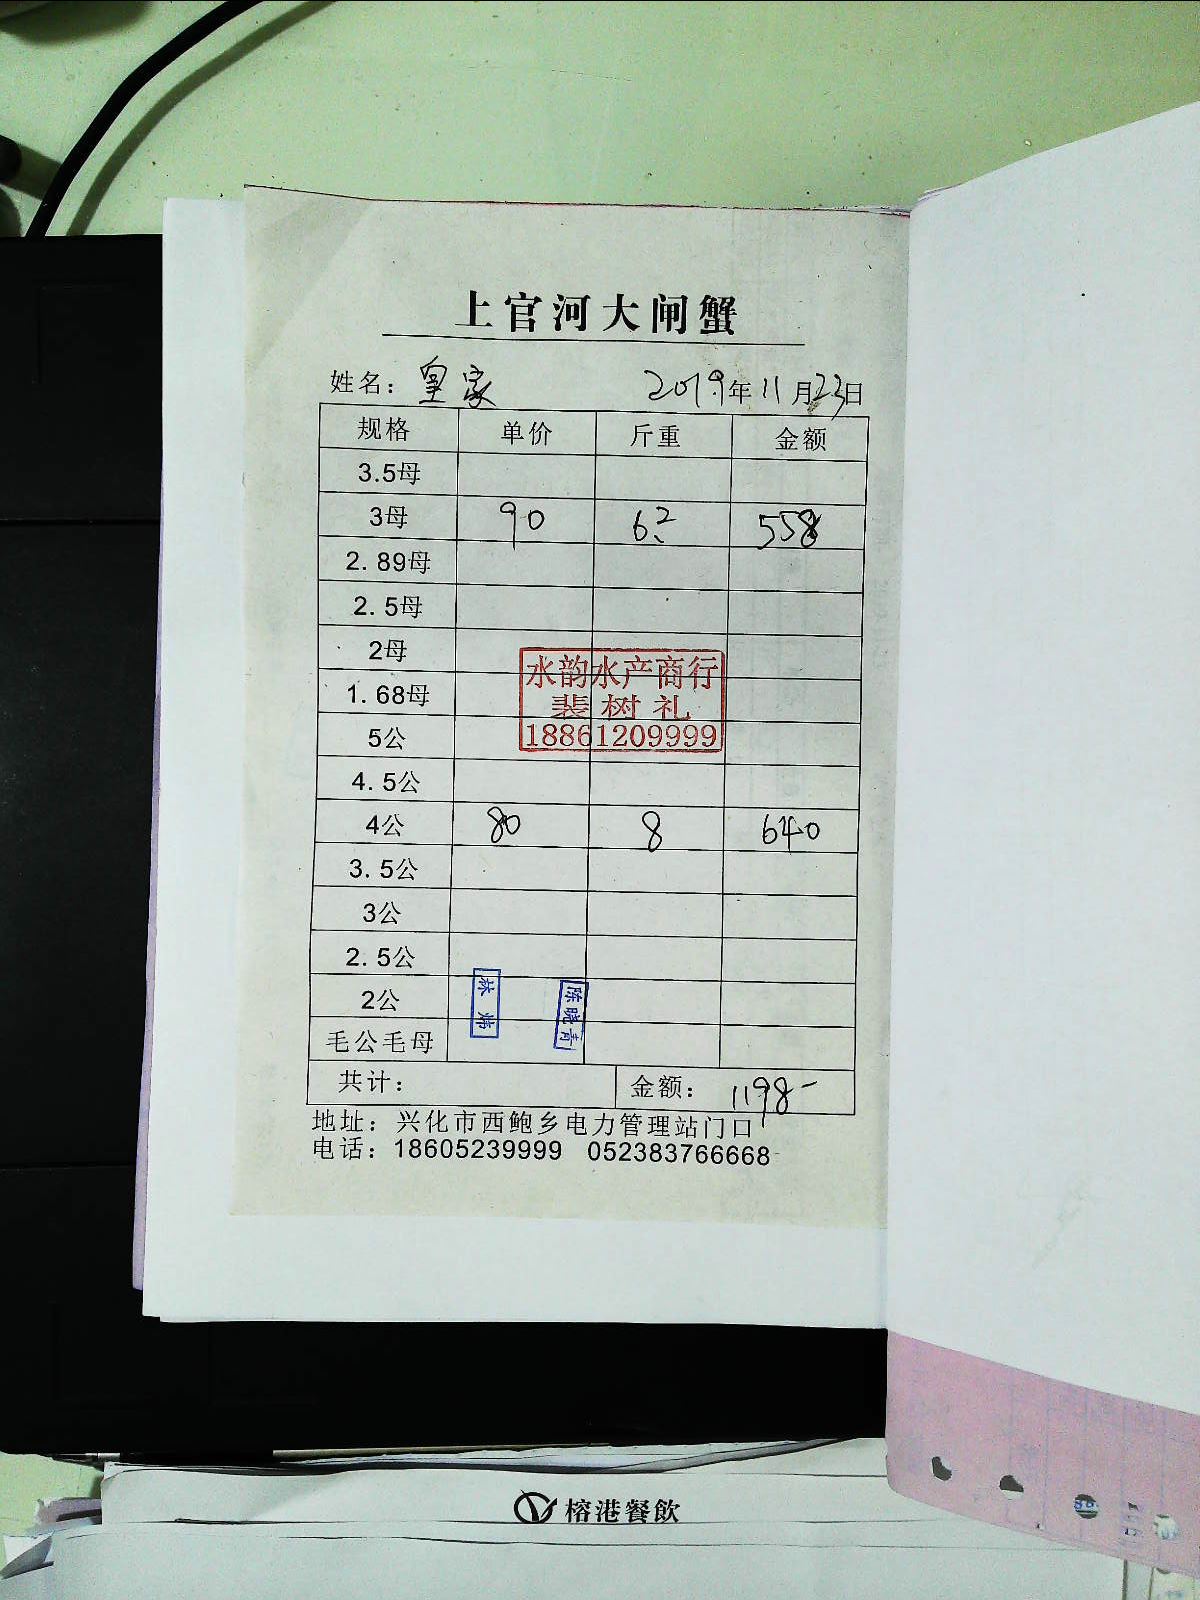 上官河大闸蟹
姓名：皇家 2019年11月23日
规格 单价 斤重 金额
3.5母
3母 90 6.2 558
2.89母
2.5母
2母
1.68母
水韵水产商行
裴树礼
18861209999
5公
4.5公
4公 80 8 640
3.5公
3公
2.5公
2公
林
陈晓青
毛公毛母
共计： 金额：1198-
地址：兴化市西鲍乡电力管理站门口
电话：18605239999 052383766668
榕港餐飲